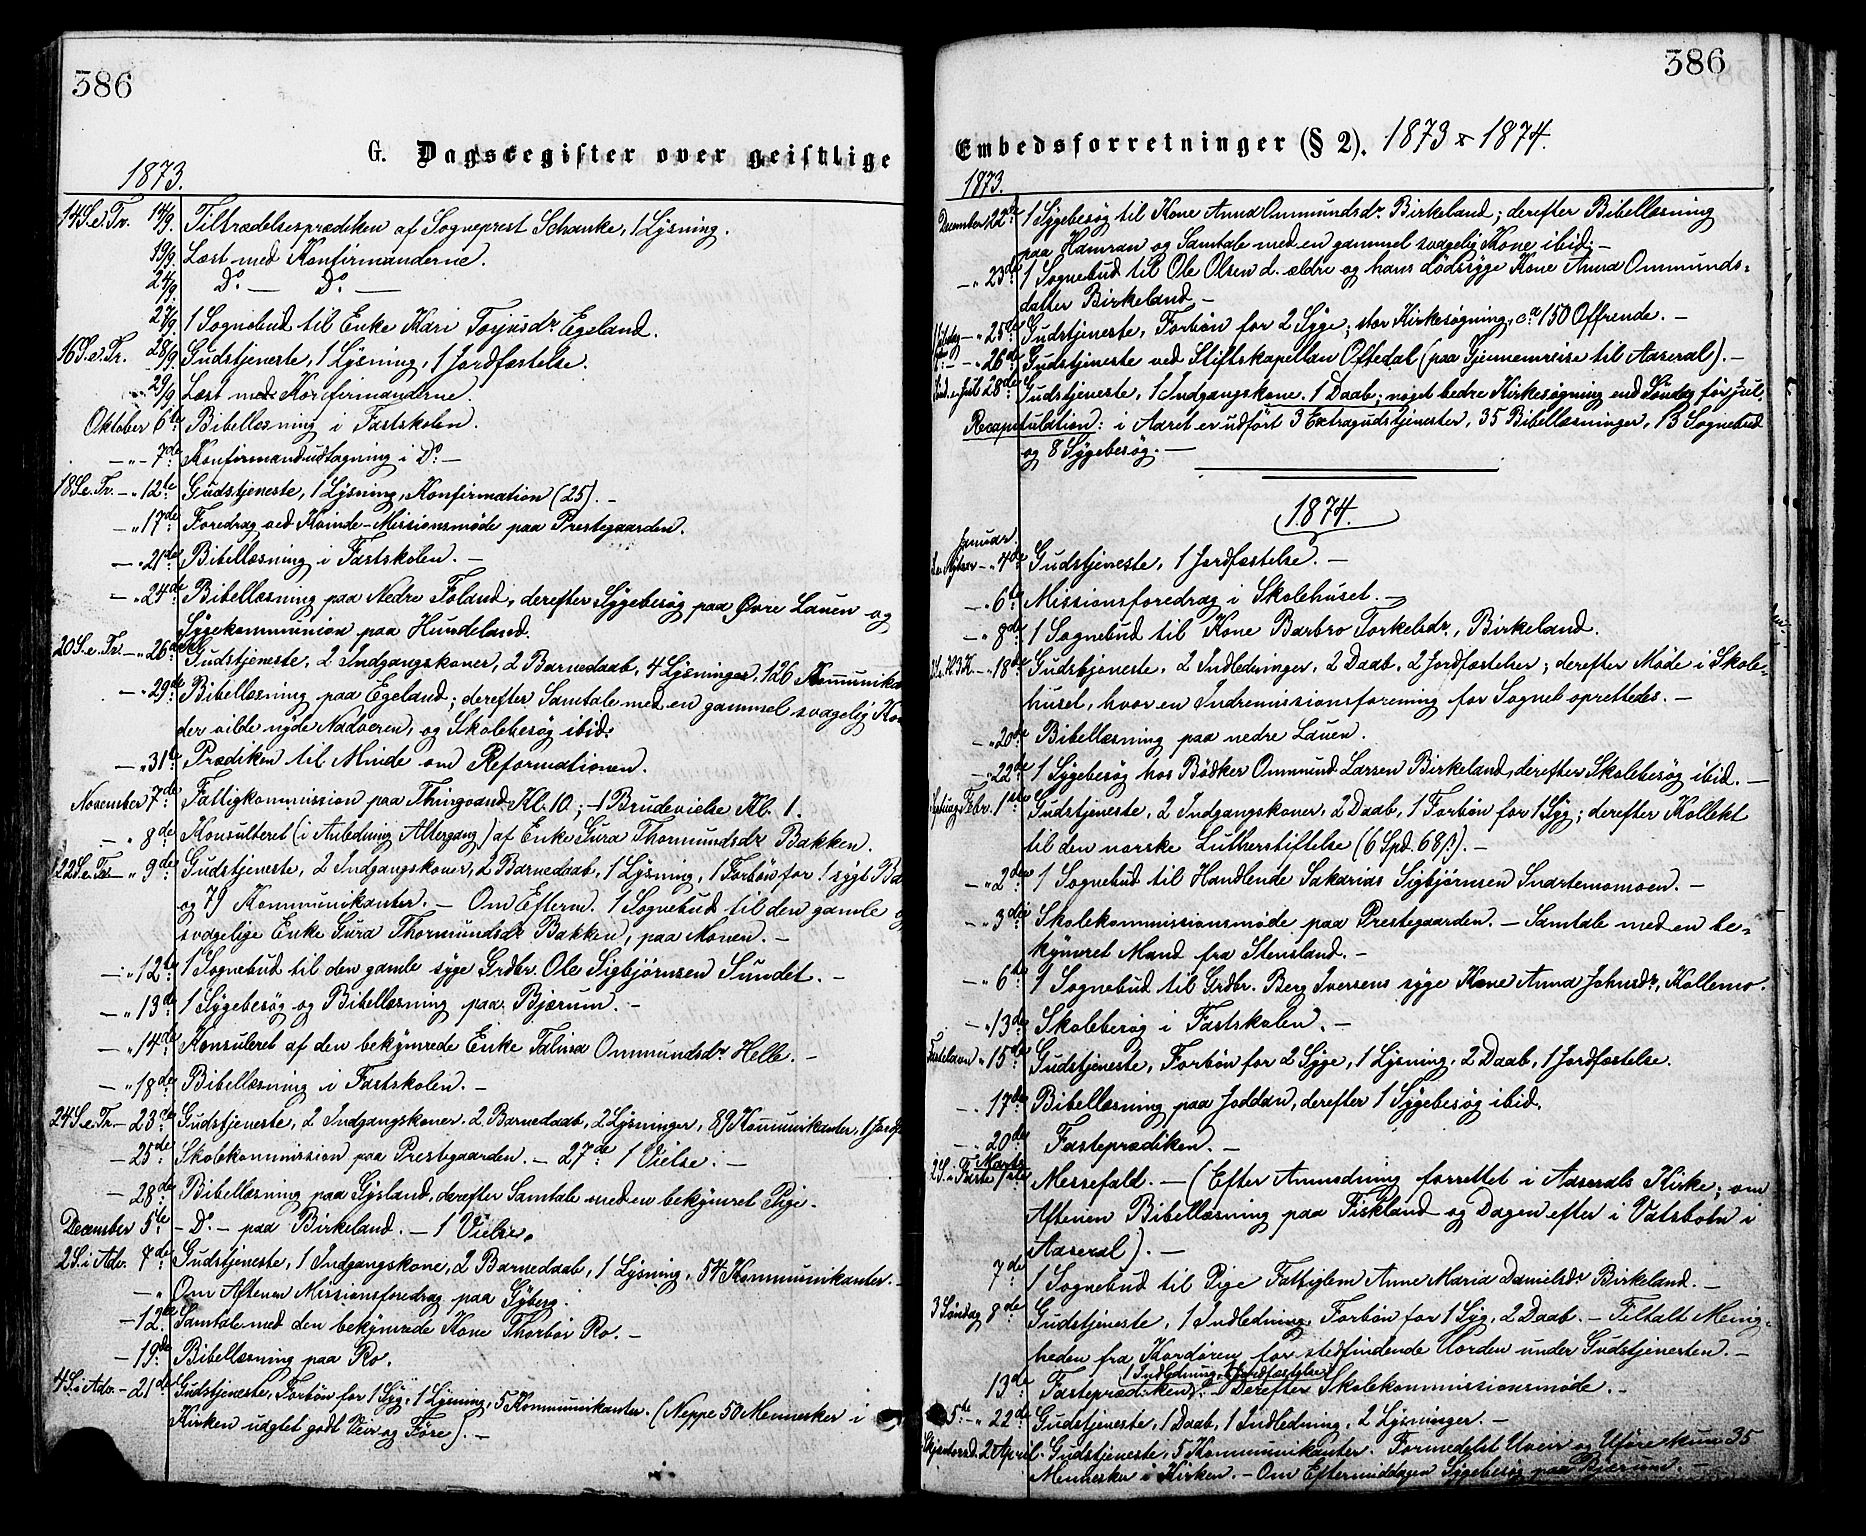 386
G. Dagsregister over geistlige
1873.
14 S. e. Tr. 14/9. Tiltrædelsesprædiken af Sogneprest Schanke, 1 Lysning.
19/9 Læst med Konfirmanderne.
24/9. Do. — Do. —
27/9. 1 Sognebud til Enke Kari Torjusdr. Egeland.
16 S. e. Tr. 28/9 Gudstjeneste, 1 Lysning, 1 Jordfæstelse.
29/9 Læst med Konfirmanderne.
Oktober 6te Bibellæsning i Fastskolen.
— " — 7de Konfirmandudtagning i Do. —
18 S. e. Tr. — " 12te Gudstjeneste, 1 Lysning, Konfirmation (25). —
— " 17de Foredrag ved Kvinde-Missionsmøde paa Prestegaarden.
— " 21de Bibellæsning i Fastskolen. —
— " 24de Bibellæsning paa Nedre Foland, derefter Sygebesøg paa Øvre Lauen og
Sygekommunion paa Hundeland.
20 S. e. Tr. — " 26de Gudstjeneste, 2 Indgangskoner, 2 Barnedaab, 4 Lysninger, 126 Kommunika
— " 29de Bibellæsning paa Egeland; derefter Samtale med en gammel svagelig Kon
der vilde nyde Nadveren, og Skolebesøg ibid.
— " 31te Prædiken til Minde om Reformationen.
November 7de Fattigkommission paa Thingvand Kl. 10.; — 1 Brudevielse Kl. 1.
— " 8de Konsulteret (i Anledning Altergang) af Enke Gura Thormundsdr. Bakken.
22 S. e. Tr. — " 9de Gudstjeneste, 2 Indgangskoner, 2 Barnedaab, 1 Lysning, 1 Forbøn for 1 sygt Ba
og 79 Kommunikanter. — Om Efterm. 1 Sognebud til den gamle og
svagelige Enke Gura Thormundsdr. Bakken, paa Monen. —
— " 12te 1 Sognebud til den gamle syge Grdbr. Ole Sigbjørnsen Sundet. —
— " 13de 1 Sygebesøg og Bibellæsning paa Bjærum. —
— " 14de Konsuleret af den bekymrede Enke Talusa Ommundsdr. Helle. —
— " 18de Bibellæsning i Fastskolen. —
24 S. e. Tr. — 23de Gudstjeneste, 2 Indgangskoner, 2 Barnedaab, 2 Lysninger, 89 Kommunikanter, 1 Jordf
— 25de Skolekommission paa Prestegaarden. — 27de 1 Vielse. —
— 28de Bibellæsning paa Gysland, derefter Samtale med en bekymret Pige.
December 5te — Do. — paa Birkeland. — 1 Vielse.
2 S. i Adv. 7de Gudstjeneste, 1 Indgangskone, 2 Barnedaab, 1 Lysning, 54 Kommunikanter. —
— " Om Aftenen Missionsforedrag paa Gyberg.
— 12te Samtale med den bekymrede Kone Thorbør Ro. —
— 19de Bibellæsning paa Ro.
4 S. i Adv. — 21de Gudstjeneste, Forbøn for 1 Syg, 1 Lysning, 5 Kommunikanter. (Neppe 50 Mennesker i
Kirken uagtet godt Veir og Føre). —
386
Embedsforretninger (§ 2). 1873 & 1874.
1873.
December 22de 1 Sygebesøg til Kone Anna Ommundsdr. Birkeland; derefter Bibellæsning
paa Hamran og Samtale med en gammel svagelig Kone ibid. —
— " 23de 1 Sognebud til Ole Olsen d. ældre og hans dødssyge Kone Anna Ommunds-
datter Birkeland. —
— " 25de Gudstjeneste, Forbøn for 2 Syge; stor Kirkesøgning, ca. 150 Offrende. —
— " 26de Gudstjeneste ved Stiftskapellan Oftedal (paa Gjennemreise til Aaseral). —
28de Gudstjeneste, 1 Indgangskone, 1 Daab; noget bedre Kirkesøgning end Søndag før Jul.
Recapitulation: i Aaret er udført 3 Extragudstjenester, 35 Bibellæsninger, 13 Sognebud
og 8 Sygebesøg. —
1874.
Januar
S. e. Nytaar — " 4de Gudstjeneste, 1 Jordfæstelse. —
— " 6te Missionsforedrag i Skolehuset. —
— " 8de 1 Sognebud til Kone Barbro Torkelsdr., Birkeland.
S. e. H. 3 K. — " 18de Gudstjeneste, 2 Indledninger, 2 Daab, 2 Jordfæstelser; derefter Møde i Skole-
huset, hvor en Indremissionsforening for Sognet oprettedes. —
— " 20de Bibellæsning paa nedre Lauen.
— " 22de 1 Sygebesøg hos Bødker Ommund Larsen Birkeland, derefter Skolebesøg ibid. —
Febr. 1ste Gudstjeneste, 2 Indgangskoner, 2 Daab, 1 Forbøn for 1 Syg; derefter Kollekt
til den norske Lutherstiftelse (6 Spd. 68 ß). —
— " 2den 1 Sognebud til Handlende Sakarias Sigbjørnsen Snartemomoen. —
— " 3die Skolekommissionsmøde paa Prestegaarden. — Samtale med en be-
kymret Mand fra Stensland. —
— " 6te 1 Sognebud til Grdbr. Berg Iversens syge Kone Anna Johnsdr., Kollemo.
— " 13de Skolebesøg i Fastskolen. —
Fastelavn " 15de Gudstjeneste, Forbøn for 2 Syge, 1 Lysning, 2 Daab, 1 Jordfæstelse.
— " 17de Bibellæsning paa Joddan, derefter 1 Sygebesøg ibid.
— " 20de Fasteprædiken. —
2 S. i Faste Marts 1ste Messefald. — (Efter Anmodning forrettet i Aaserals Kirke; om
Aftenen Bibellæsning paa Fiskland og Dagen efter i Vatsbotn i
Aaseral). —
7de 1 Sognebud til Pige Fattiglem Anne Maria Danielsdr. Birkeland. —
3 Søndag 8de Gudstjeneste, 1 Indledning, Forbøn for 1 Syg, 2 Daab. — Tiltalt Menig-
heden fra Kordøren for stedfindende Uorden under Gudstjenesten. —
1 Indledning, 1 Jordfæstelse
13de Fasteprædiken. — Derefter Skolekommissionsmøde. —
5te — " 22de Gudstjeneste, 1 Daab, 1 Indledning, 2 Lysninger. —
Skjærtorsd. 2 April. Gudstjeneste, 5 Kommunikanter. Formedelst Uveir og Uføre kun 35
Mennesker i Kirken. — Om Eftermiddagen Sygebesøg paa Bjærum. —